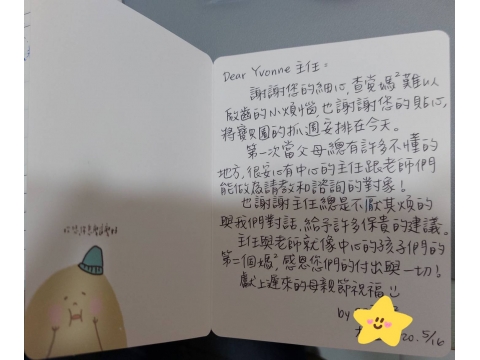 Dear Yvonne 主任:
謝謝您的細心,查覺媽²難以
啟齒的小煩惱,也謝謝您的貼心,
將寶貝園的抓週安排在今天。
第一次當父母總有許多不懂的
地方,很安心有中心的主任跟老師們
能做為請教和諮詢的對象!
也謝謝主任總是不厭其煩的
與我們對話,給予許多保貴的建議。
主任與老師就像中心的孩子們的
第二個媽²,感恩您們的付出與一切!
獻上遲來的母親節祝福
by
20. 5/16